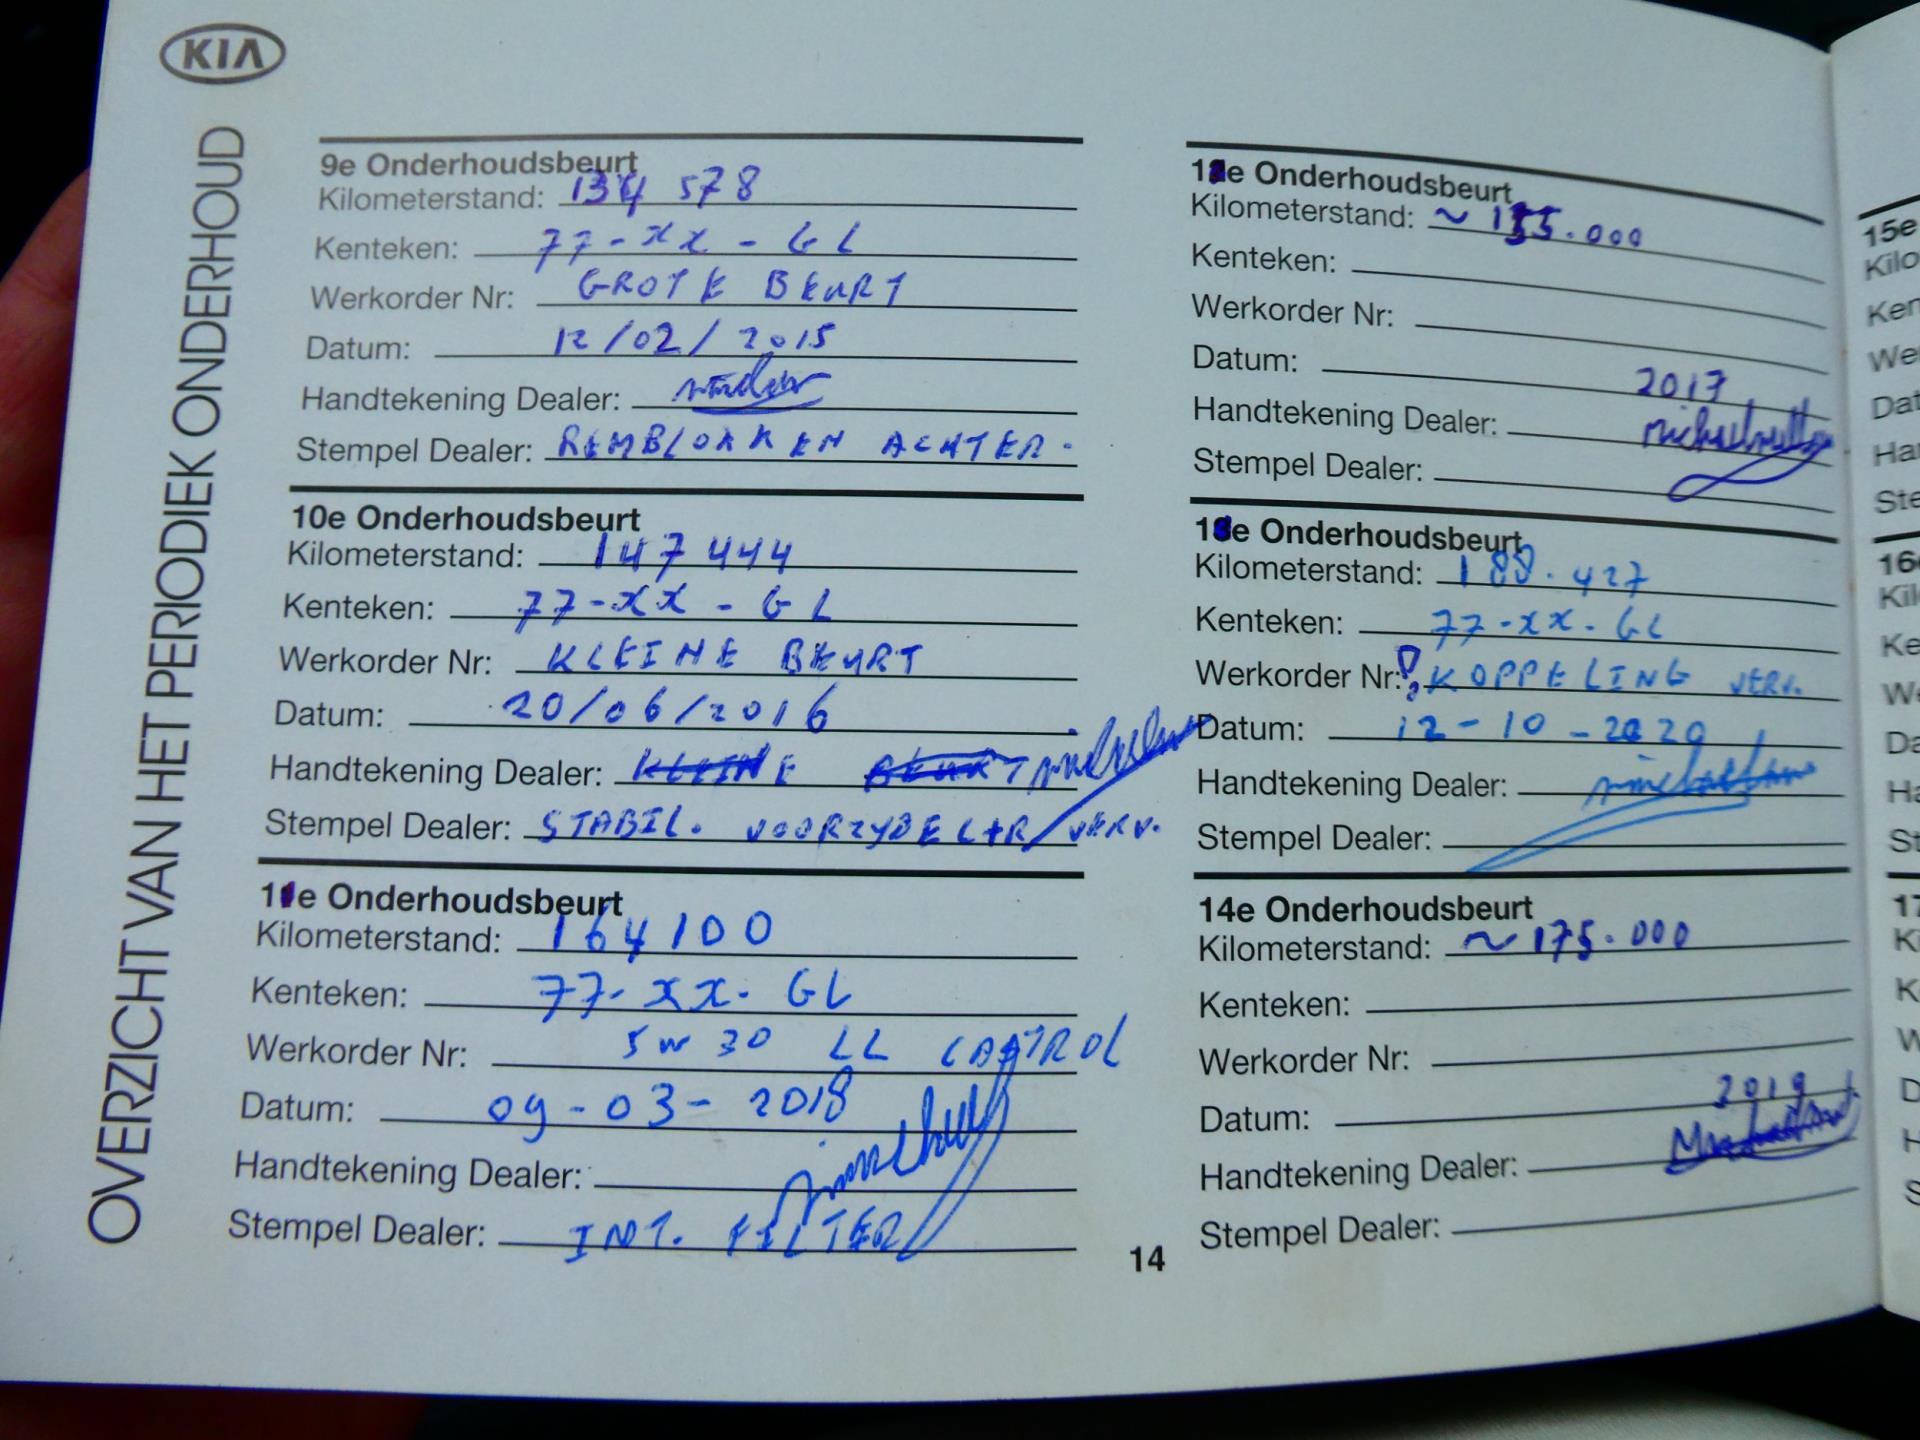 KIA
OVERZICHT VAN HET PERIODIEK ONDERHOUD
9e Onderhoudsbeurt
Kilometerstand: 134 578
Kenteken: 77-XX-GL
Werkorder Nr: GROTE BEURT
Datum: 12/02/2015
Handtekening Dealer:
Stempel Dealer: REMBLOKKEN ACHTER.
10e Onderhoudsbeurt
Kilometerstand: 147444
Kenteken: 77-XX-GL
Werkorder Nr: KLEINE BEURT
Datum: 20/06/2016
Handtekening Dealer: KLEINE BEURT
Stempel Dealer: STABIL. VERV.
11e Onderhoudsbeurt
Kilometerstand: 164100
Kenteken: 77-XX-GL
Werkorder Nr: 5W30 LL CASTROL
Datum: 09-03-2018
Handtekening Dealer:
Stempel Dealer: INT. FILTER
12e Onderhoudsbeurt
Kilometerstand: ~ 155.000
Kenteken:
Werkorder Nr:
Datum: 2017
Handtekening Dealer:
Stempel Dealer:
13e Onderhoudsbeurt
Kilometerstand: 188.427
Kenteken: 77-XX-GL
Werkorder Nr: KOPPELING VERV.
Datum: 12-10-2020
Handtekening Dealer:
Stempel Dealer:
14e Onderhoudsbeurt
Kilometerstand: ~175.000
Kenteken:
Werkorder Nr:
Datum: 2019
Handtekening Dealer:
Stempel Dealer:
14
15e
16
17